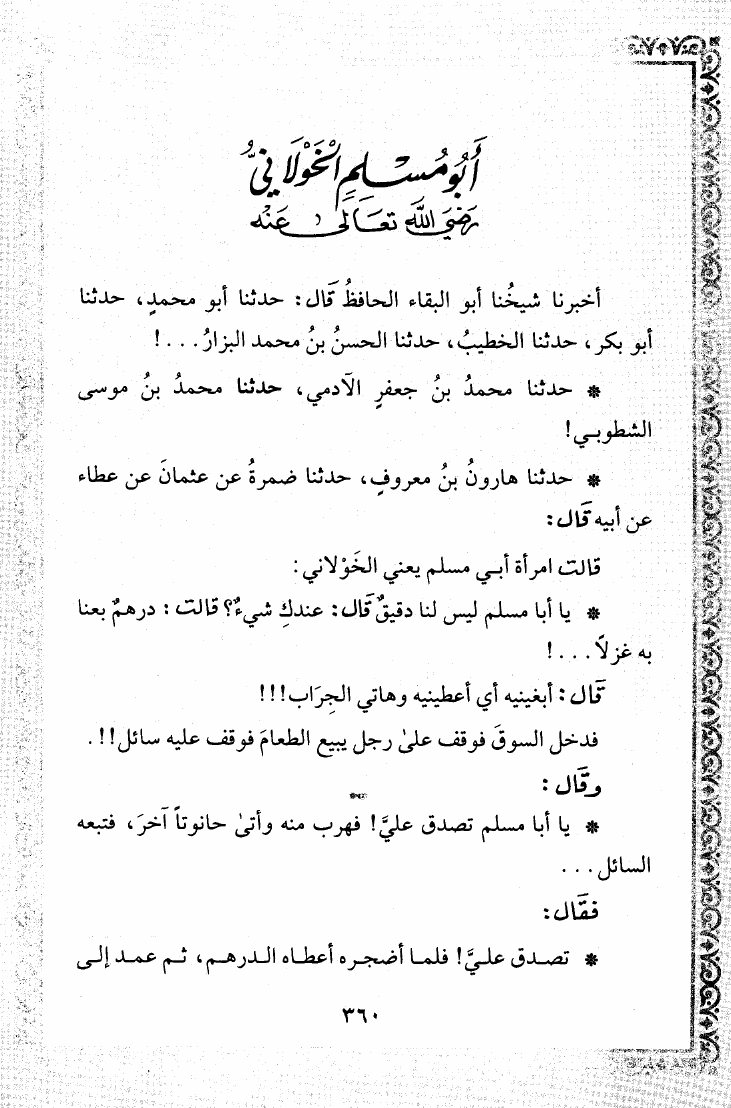 أَبُو مُسْلِمٍ الْخَوْلَانِيُّ
رَضِيَ اللَّهُ تَعَالَى عَنْهُ
أخبرنا شيخُنا أبو البقاء الحافظُ قَال: حدثنا أبو محمدٍ، حدثنا
أبو بكر، حدثنا الخطيبُ، حدثنا الحسنُ بنُ محمد البزارُ...!
* حدثنا محمدُ بنُ جعفرٍ الآدمي، حدثنا محمدُ بنُ موسى
الشطوبي!
* حدثنا هارونُ بنُ معروفٍ، حدثنا ضمرةُ عن عثمانَ عن عطاء
عن أبيه قَال:
قالت امرأة أبي مسلم يعني الخَوْلاني:
* يا أبا مسلم ليس لنا دقيقٌ قَال: عندكِ شيءٌ؟ قالت: درهمٌ بعنا
به غزلاً...!
قَال: أبغينيه أي أعطينيه وهاتي الجِرَاب!!!
فدخل السوقَ فوقف علىٰ رجل يبيع الطعامَ فوقف عليه سائل!!.
وقَال:
* يا أبا مسلم تصدق عليَّ! فهرب منه وأتىٰ حانوتاً آخرَ، فتبعه
السائل...
فقَال:
* تصدق عليَّ! فلما أضجره أعطاه الدرهم، ثم عمد إلى
٣٦٠